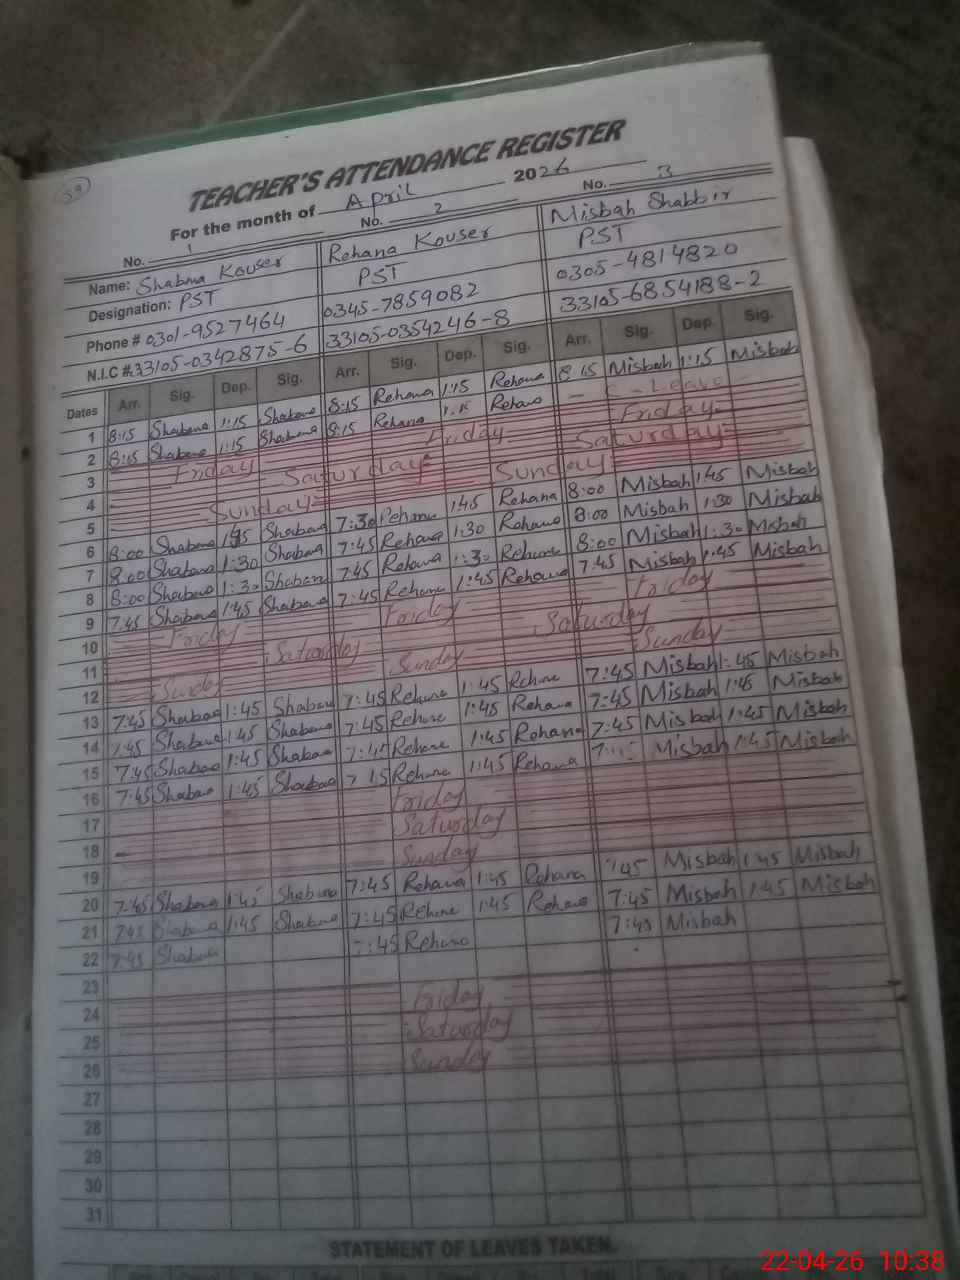 29
TEACHER'S ATTENDANCE REGISTER
For the month of April 2026
No. 1 No. 2 No. 3
Name: Shabna Kouser Rehana Kouser Misbah Shabbir
Designation: PST PST PST
Phone # 0301-9527464 0345-7859082 0305-4814820
N.I.C # 33105-0342875-6 33105-0354246-8 33105-6854188-2
Dates Arr. Sig. Dep. Sig. Arr. Sig. Dep. Sig. Arr. Sig. Dep. Sig.
1 8:15 Shabana 1:15 Shabana 8:15 Rehana 1:15 Rehana 8:15 Misbah 1:15 Misbah
2 8:15 Shabana 1:15 Shabana 8:15 Rehana 1:15 Rehana - C-Leave -
3 Friday Friday Friday
4 Saturday Saturday
5 Sunday Sunday
6 8:00 Shabana Shabana 7:30 Rehana 1:45 Rehana 8:00 Misbah 1:45 Misbah
7 8:00 Shabana 1:30 Shabana 7:45 Rehana 1:30 Rehana 8:00 Misbah 1:30 Misbah
8 8:00 Shabana 1:30 Shabana 7:45 Rehana 1:30 Rehana 8:00 Misbah 1:30 Misbah
9 7:45 Shabana 1:45 Shabana 7:45 Rehana 1:45 Rehana 7:45 Misbah 1:45 Misbah
10 Friday Friday Friday
11 Saturday Saturday
12 Sunday Sunday Sunday
13 7:45 Shabana 1:45 Shabana 7:45 Rehana 1:45 Rehana 7:45 Misbah 1:45 Misbah
14 7:45 Shabana 1:45 Shabana 7:45 Rehana 1:45 Rehana 7:45 Misbah 1:45 Misbah
15 7:45 Shabana 1:45 Shabana 7:45 Rehana 1:45 Rehana 7:45 Misbah 1:45 Misbah
16 7:45 Shabana 1:45 Shabana Rehana 1:45 Rehana Misbah 1:45 Misbah
17 Friday
18 Saturday
19 Sunday
20 7:45 Shabana 1:45 Shabana 7:45 Rehana 1:45 Rehana 7:45 Misbah 1:45 Misbah
21 7:45 Shabana 1:45 Shabana 7:45 Rehana 1:45 Rehana 7:45 Misbah 1:45 Misbah
22 7:45 Shabana 7:45 Rehana 7:45 Misbah
23
24 Friday
25 Saturday
26 Sunday
27
28
29
30
31
STATEMENT OF LEAVES TAKEN.
22-04-26 10:38